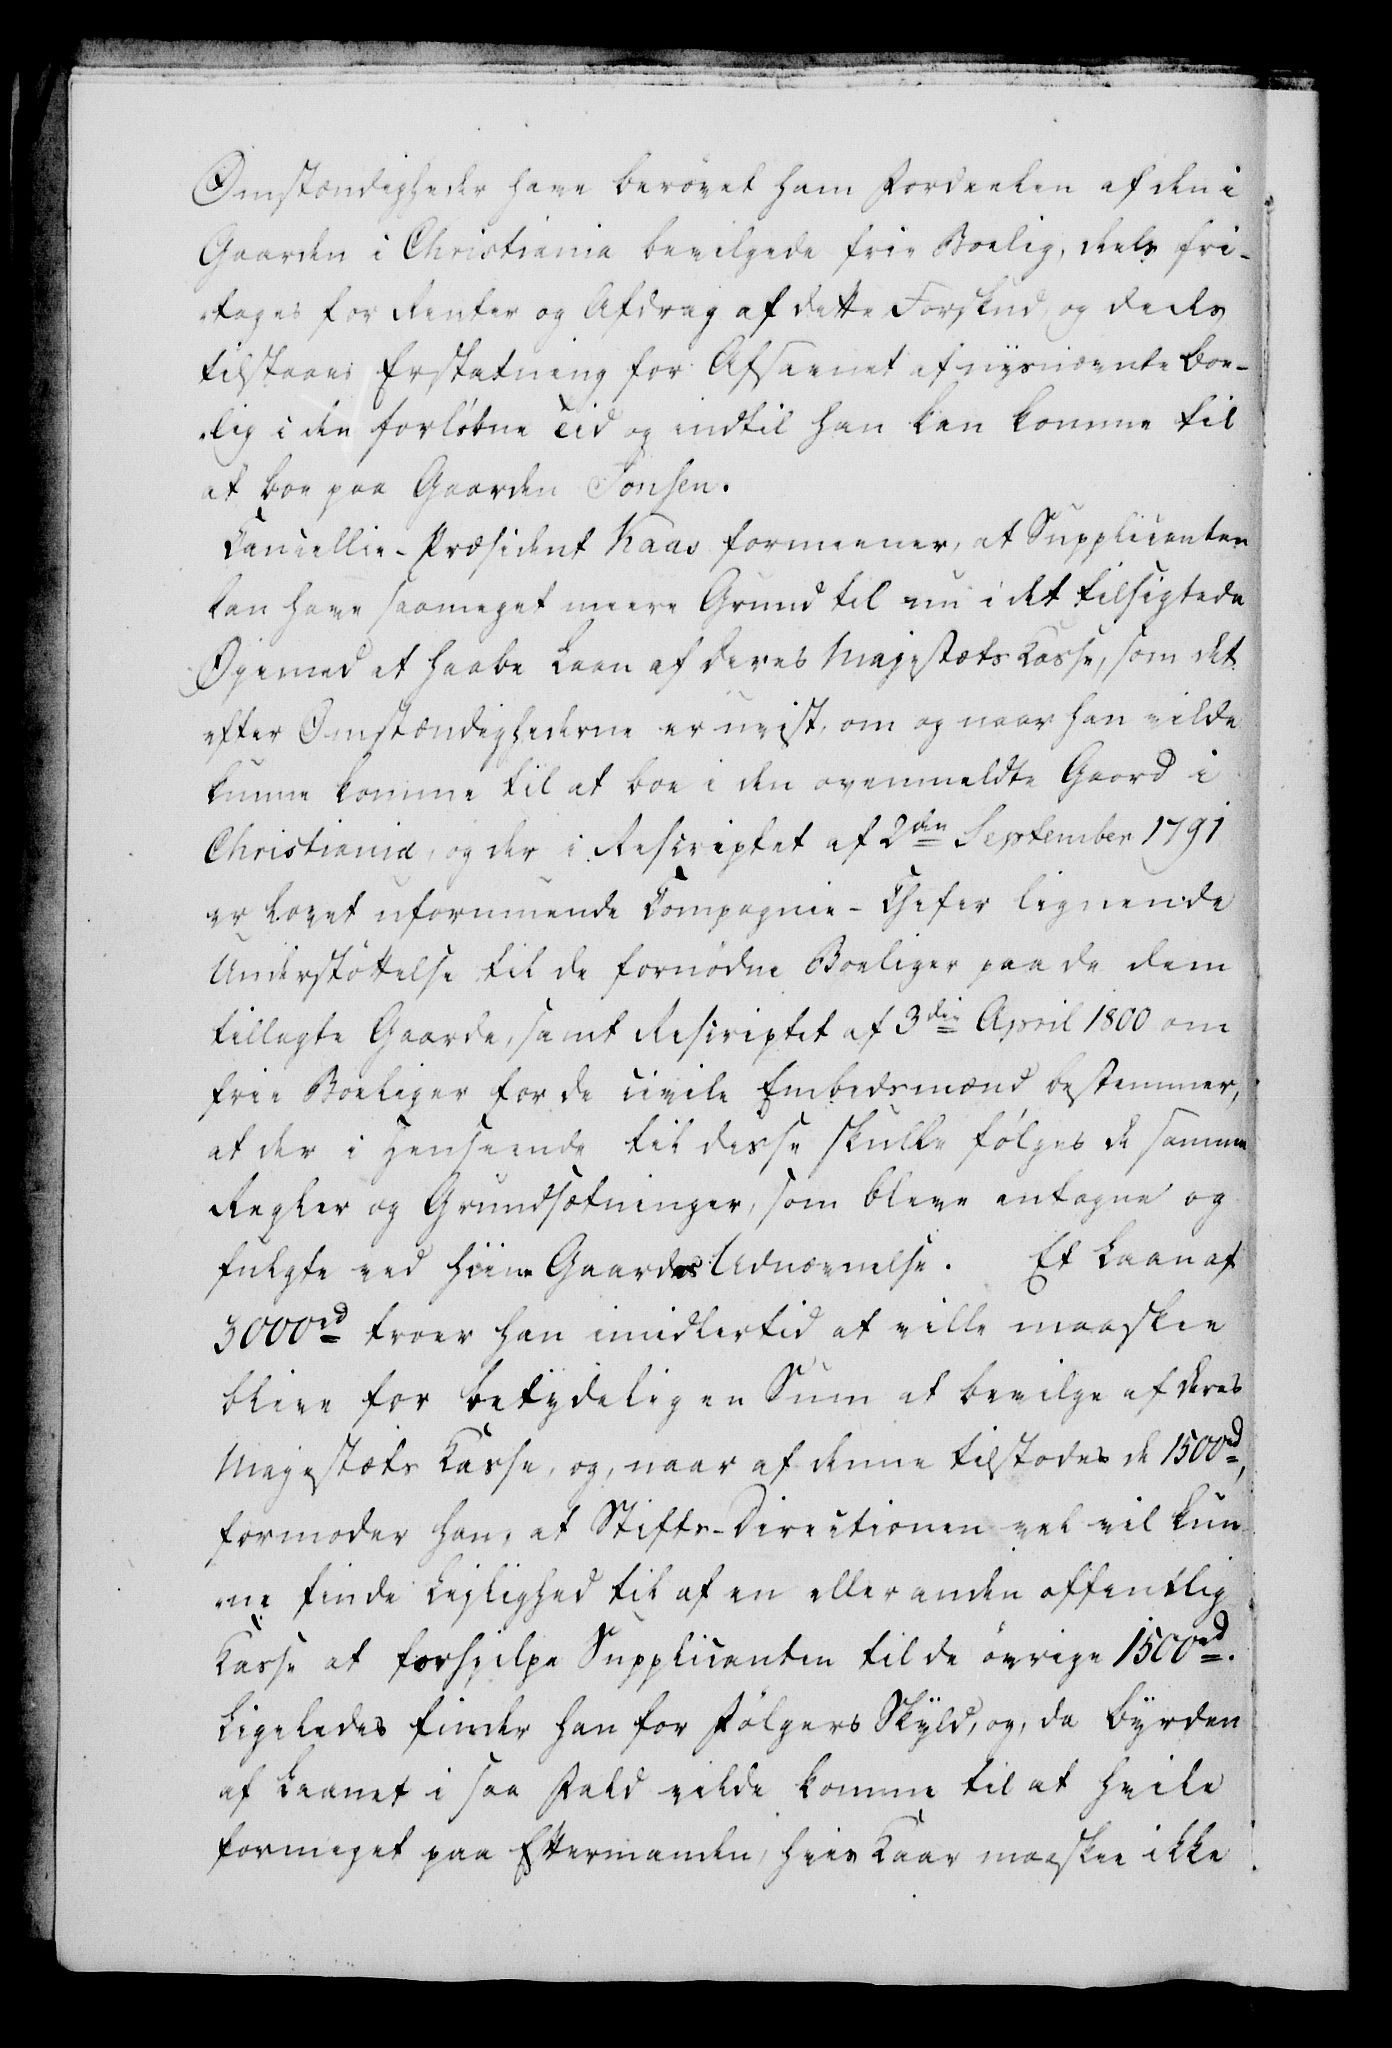 Omstændigheder have berøvet ham Fordeelen af den i
Gaarden i Christiania bevilgede frie Boelig, deels fri-
-tages for Renter og Afdrag af dette Forskud, og deels
tilstaaes Erstatning for Afsavnet af nysnævnte Boe-
-lig i den forløbne Tid og indtil han kan komme til
at boe paa Gaarden Tonsen.
Cancellie-Præsident Kaas formeener, at Supplicanten
kan have saameget meere Grund til nu i det tilsigtede
Øjemed at haabe Laan af Deres Majestæts Kasse, som det
efter Omstændighederne er uvist, om og naar han vilde
kunne komme til at boe i den ovenmeldte Gaard i
Christiania, og der i Rescriptet af 2den September 1791
er lovet uformuende Compagnie-Chefer lignende
Understøttelse til de fornødne Boeliger paa de dem
tillagte Gaarde, samt Rescriptet af 3die April 1800 om
frie Boeliger for de civile Embedsmænd bestemmer,
at der i Henseende til disse skulle følges de samme
Regler og Grundsætninger, som bleve antagne og
fulgte ved hiine Gaardes Udnævnelse. Et Laan af
3000rd troer han imidlertid at ville maaskee
blive for betydelig en Sum at bevilge af Deres
Majestæts Kasse, og, naar af denne tilstodes de 1500rd,
formoder han, at Stifts-Directionen vel vil kun-
-ne finde Lejlighed til af en eller anden offentlig
Kasse at forhjelpe Supplicanten til de øvrige 1500rd.
Ligeledes finder han for Følgers Skyld, og, da Byrden
af Laanet i saa Fald vilde komme til at hvile
formeget paa Eftermanden, hvis Kaar maaskee ikke